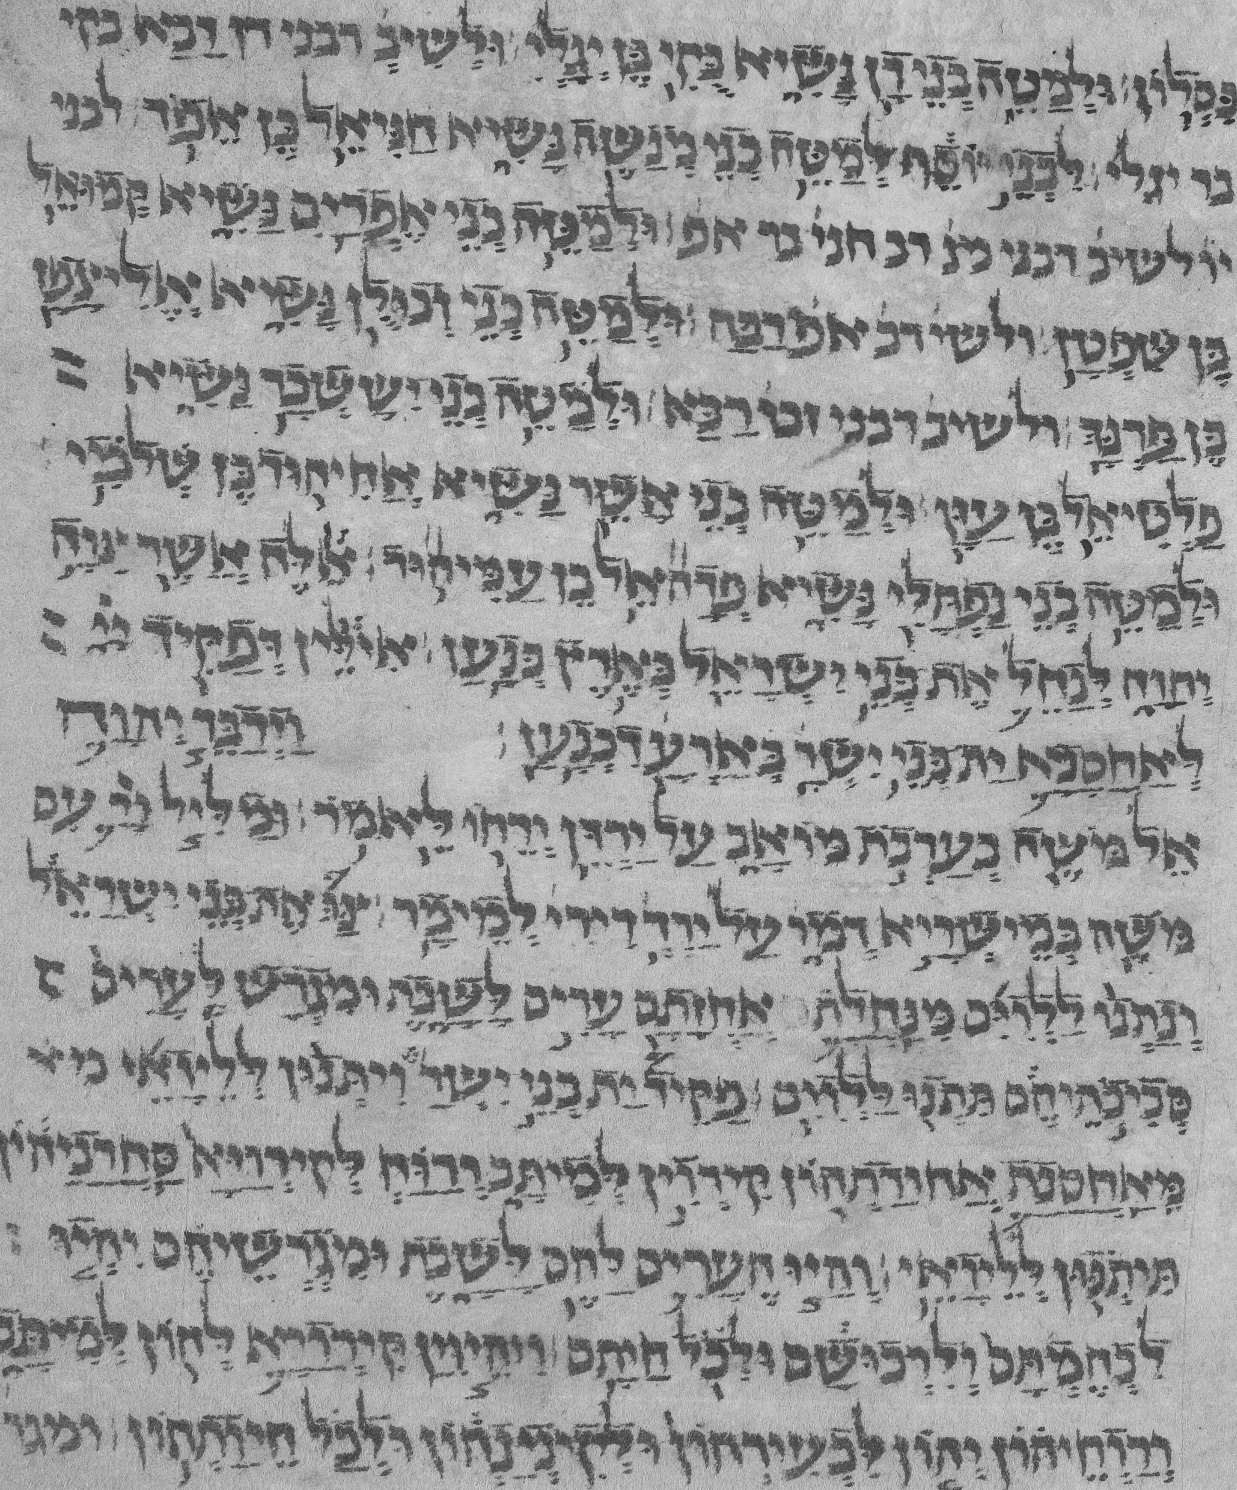 בכסלון׃ ולמטה בני דן נשיא בקי בן יגלי׃ ולשיב דבני דן רבא בקי
בר יגלי׃ לבני יוסף למטה בני מנשה נשיא חניאל בן אפד׃ לבני
יו לשיב דבני מנ רב חני בר אפ׃ ולמטה בני אפרים נשיא קמואל
בן שפטן׃ ולשי דב אפ רבה׃ ולמטה בני זבולן נשיא אליצפן
בן פרנך׃ ולשיב דבני זבו רבא׃ ולמטה בני יששכר נשיא
פלטיאל בן עזן׃ ולמטה בני אשר נשיא אחיהוד בן שלמי
ולמטה בני נפתלי נשיא פדהאל בן עמיהוד׃ אלה אשר צוה
יהוה לנחל את בני ישראל בארץ כנען׃ אילין דפקיד
לאחסנא ית בני ישר בארעא דכנען׃ וידבר יהוה
אל משה בערבת מואב על ירדן ירחו לאמר׃ ומליל עם
משה במישריא דמו על ירד דירי למימר׃ צו את בני ישראל
ונתנו ללוים מנחלת אחזתם ערים לשבת ומגרש לערים
סביבתיהם תתנו ללוים׃ פקיד ית בני ישר ויתנון לליואי
מאחסנת אחודתהון קירוין למיתב ורוח לקירויא סחרניהון
תיתנון לליואי׃ והיו הערים להם לשבת ומגרשיהם יהיו
לבהמתם ולרכושם ולכל חיתם׃ ויהוין קירויא להון למיתב
ורוחיהון יהון לבעירהון ולקינינהון ולכל חיותהון׃ ומגר